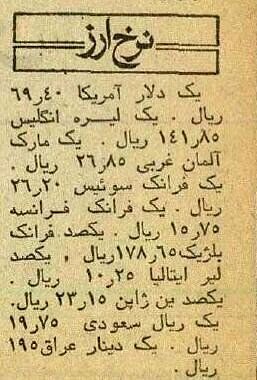 نرخ ارز
یک دلار آمریکا ۴۰ر۶۹
ریال . یک لیره انگلیس
۸۵ر۱۴۱ ریال . یک مارک
آلمان غربی ۸۵ر۲۶ ریال .
یک فرانک سوئیس ۲۰ر۲۶
ریال . یک فرانک فرانسه
۷۵ر۱۵ ریال . یکصد فرانک
بلژیک ۶۵ر۱۷۸ ریال , یکصد
لیر ایتالیا ۲۵ر۱۰ ریال .
یکصد ین ژاپن ۱۵ر۲۳ ریال.
یک ریال سعودی ۷۵ر۱۹
ریال . یک دینار عراق ۱۹۵
ریال .